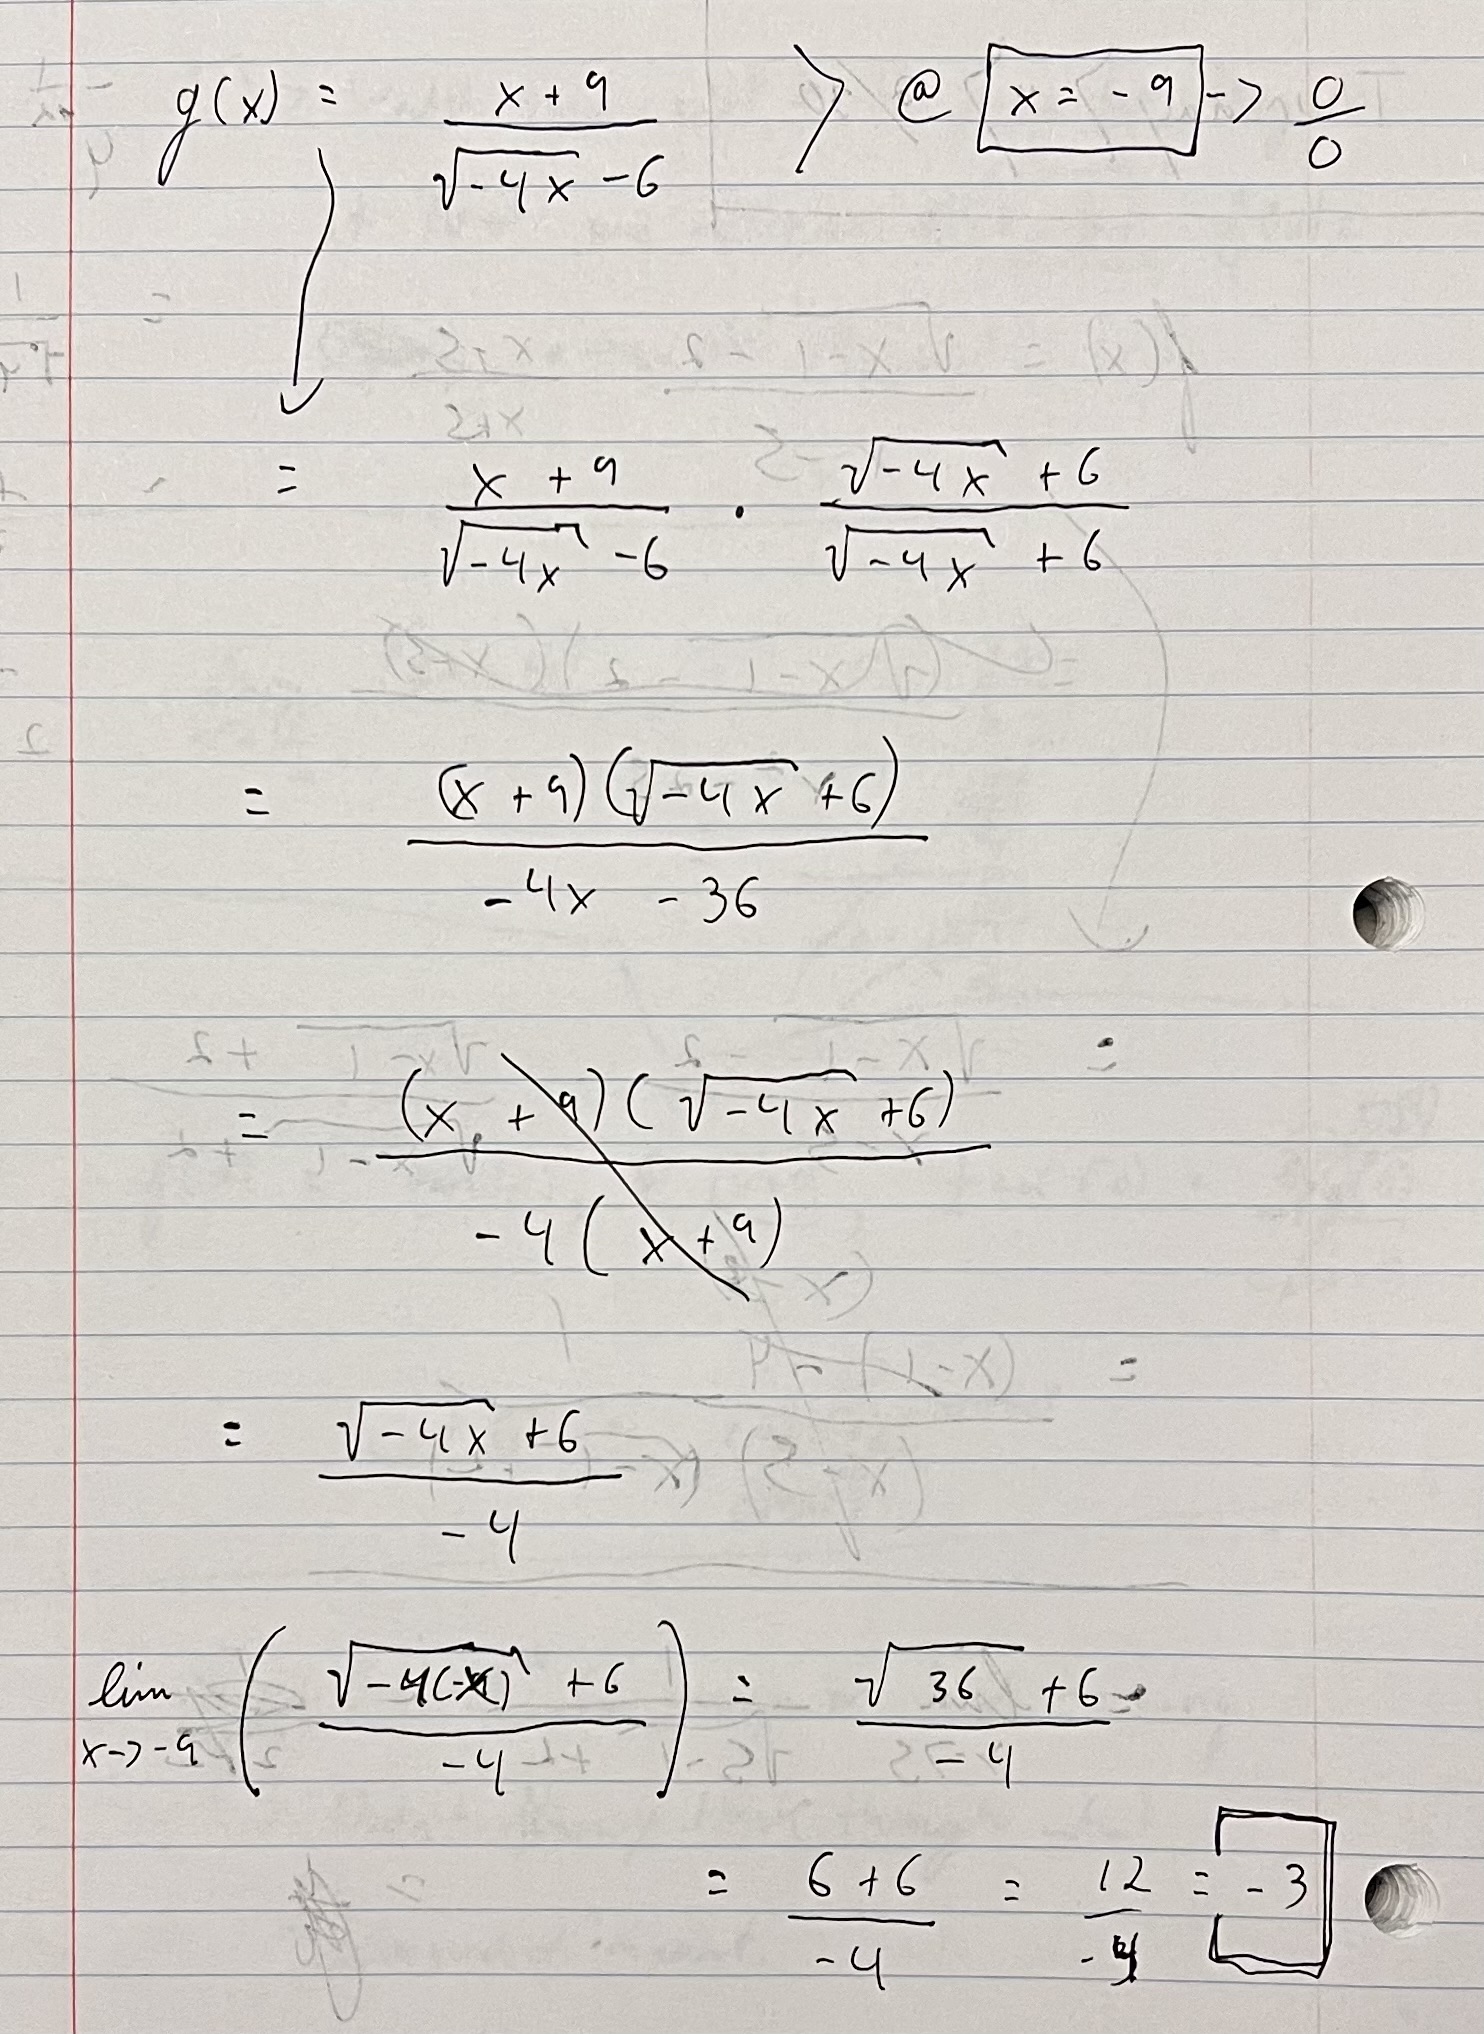 g(x) = (x + 9)/(√(-4x) - 6) > @ x = -9 -> 0/0
= (x + 9)/(√(-4x) - 6) · (√(-4x) + 6)/(√(-4x) + 6)
= (x + 9)(√(-4x) + 6)/(-4x - 36)
= (x + 9)(√(-4x) + 6)/(-4(x + 9))
= (√(-4x) + 6)/(-4)
lim x->-9 ((√(-4(-x)) + 6)/(-4)) = (√36 + 6)/(-4)
= (6 + 6)/(-4) = 12/(-4) = -3